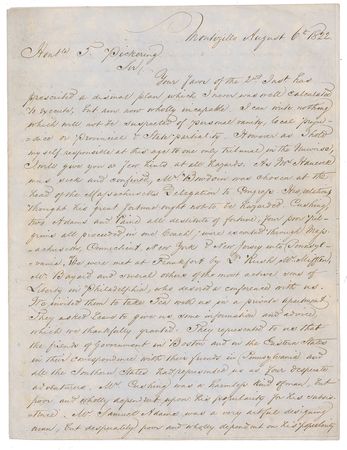 Montezillo August 6th 1822
Honble T. Pickering
Sir,
Your favor of the 2nd Inst has
prescribed a dismal plan which I never was well calculated
to execute, but am now wholly incapable. I can write nothing
which will not be suspected of personal vanity, local preju-
-dice or Provincial & State partiality. However as I hold
myself responsible at this age to one only tribunal in the Universe,
I will give you a few hints at all hazards. As Mr Hancock
was sick and confined, Mr Bowdoin was chosen at the
head of the Massachusetts Delegation to Congress. His relations
thought his great fortune ought not to be hazarded. Cushing,
two Adams's and Paine all destitute of fortune, four poor Pil-
-grims all, proceeded in one Coach, were escorted through Mass-
-achusetts, Connecticut, New York & New Jersey into Pennsyl-
-vania. We were met at Frankfort by Dr Rush, Mr Mifflin,
Mr Bayard and several others of the most active sons of
Liberty in Philadelphia, who desired a conference with us.
We invited them to take Tea with us in a private apartment.
They asked leave to give us some information and advice,
which we thankfully granted. They represented to us that
the friends of Government in Boston and in the Eastern States
in their correspondence with their friends in Pennsylvania and
all the Southern States had represented us as four desperate
adventurers. Mr Cushing was a harmless kind of man, but
poor and wholly dependent upon his popularity for his subsis-
-tence. Mr Samuel Adams was a very artful designing
man, but desperately poor and wholly dependent on his popularity